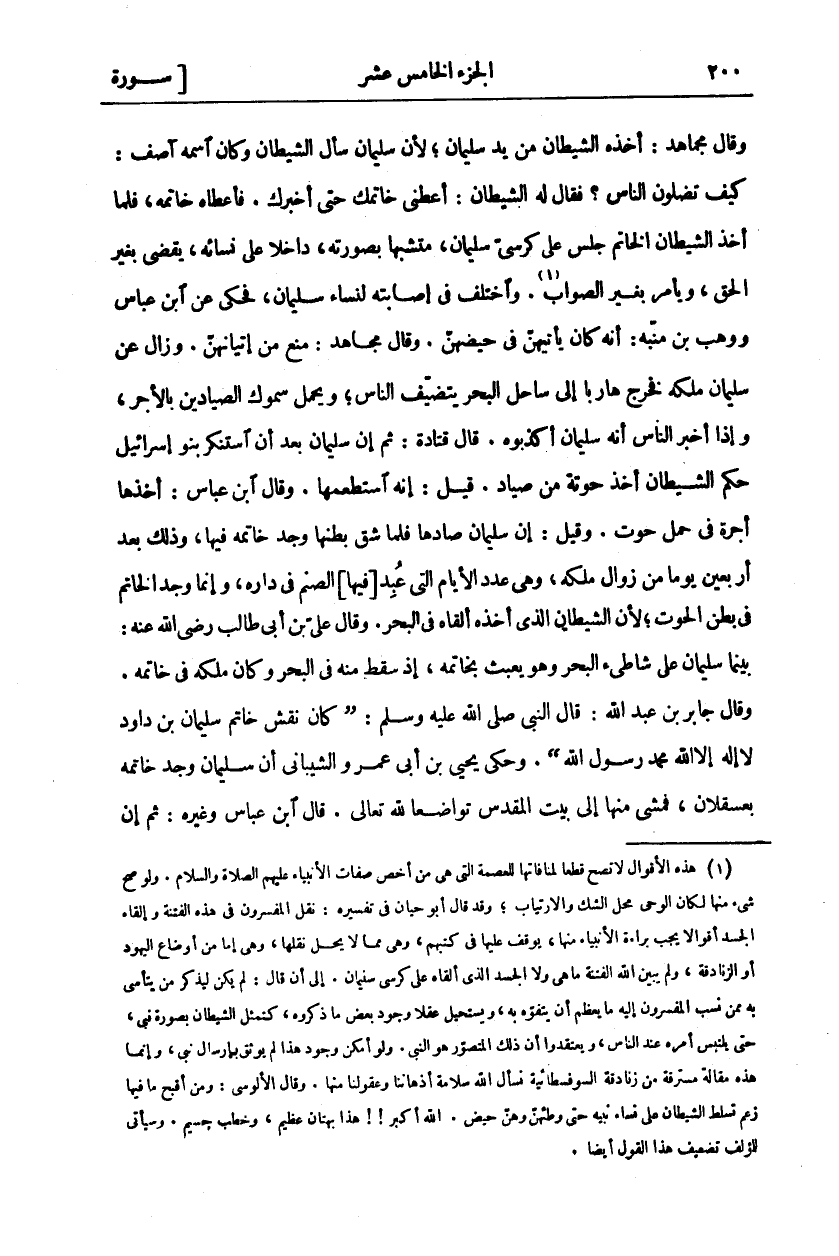 ٢٠٠ الجزء الخامس عشر [ ســورة
وقال مجاهد : أخذه الشيطان من يد سليمان ؛ لأن سليمان سأل الشيطان وكان آسمه آصف :
كيف تضلون الناس ؟ فقال له الشيطان : أعطنى خاتمك حتى أخبرك . فأعطاه خاتمه ، فلما
أخذ الشيطان الخاتم جلس على كرسىّ سليمان، متشبها بصورته، داخلا على نسائه، يقضى بغير
الحق ، ويأمر بغير الصواب(١) . وآختلف فى إصابته لنساء سليمان، فحكى عن آبن عباس
ووهب بن منّبه: أنه كان يأتيهنّ فى حيضهنّ . وقال مجاهد : منع من إتيانهنّ . وزال عن
سليمان ملكه فخرج هاربا إلى ساحل البحر يتضيّف الناس؛ ويحمل سموك الصيادين بالأجر ،
وإذا أخبر الناس أنه سليمان أكذبوه . قال قتادة : ثم إن سليمان بعد أن آستنكر بنو إسرائيل
حكم الشيطان أخذ حوتة من صياد . قيل : إنه آستطعمها . وقال آبن عباس : أخذها
أجرة فى حمل حوت . وقيل : إن سليمان صادها فلما شق بطنها وجد خاتمه فيها ، وذلك بعد
أربعين يوما من زوال ملكه ، وهى عدد الأيام التى عُبِد [فيها] الصنم فى داره، وإنما وجد الخاتم
فى بطن الحوت ؛ لأن الشيطان الذى أخذه ألقاه فى البحر. وقال علىّ بن أبى طالب رضى الله عنه :
بينما سليمان على شاطىء البحر وهو يعبث بخاتمه ، إذ سقط منه فى البحر وكان ملكه فى خاتمه .
وقال جابر بن عبد الله : قال النبي صلى الله عليه وسلم : ” كان نقش خاتم سليمان بن داود
لا إله إلا الله محمد رسول الله “ . وحكى يحيى بن أبى عمرو الشيبانى أن سليمان وجد خاتمه
بعسقلان ، فمشى منها إلى بيت المقدس تواضعا لله تعالى . قال آبن عباس وغيره : ثم إن
(١) هذه الأقوال لا تصح قطعا لمنافاتها للعصمة التى هى من أخص صفات الأنبياء عليهم الصلاة والسلام . ولو صح
شىء منها لكان الوحى محل الشك والارتياب ؛ وقد قال أبو حيان فى تفسيره : نقل المفسرون فى هذه الفتنة وإلقاء
الجسد أقوالا يجب براءة الأنبياء منها ، يوقف عليها فى كتبهم ، وهى مما لا يحل نقلها ، وهى إما من أوضاع اليهود
أو الزنادقة ، ولم يبين الله الفتنة ما هى ولا الجسد الذى ألقاه على كرسى سليمان . إلى أن قال : لم يكن ليذكر من يتأسى
به ممن نسب المفسرون إليه ما يعظم أن يتفوّه به ، ويستحيل عقلا وجود بعض ما ذكروه ، كتمثل الشيطان بصورة نبى ،
حتى يلتبس أمره عند الناس ، ويعتقدوا أن ذلك المتصوّر هو النبى . ولو أمكن وجود هذا لم يوثق بإرسال نبى ، وإنما
هذه مقالة مسترقة من زنادقة السوفسطائية نسأل الله سلامة أذهاننا وعقولنا منها . وقال الألوسى : ومن أقبح ما فيها
زعم تسلط الشيطان على نساء نبيه حتى وطئهنّ وهنّ حيض . الله أكبر !! هذا بهتان عظيم ، وخطب جسيم . وسيأتى
للمؤلف تضعيف هذا القول أيضا .